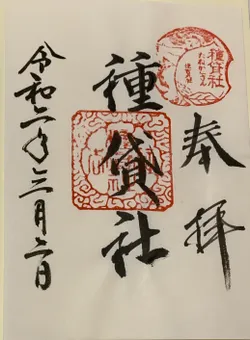 奉拝
種貸社
たねかしさん
種貸社
令和二年三月二日